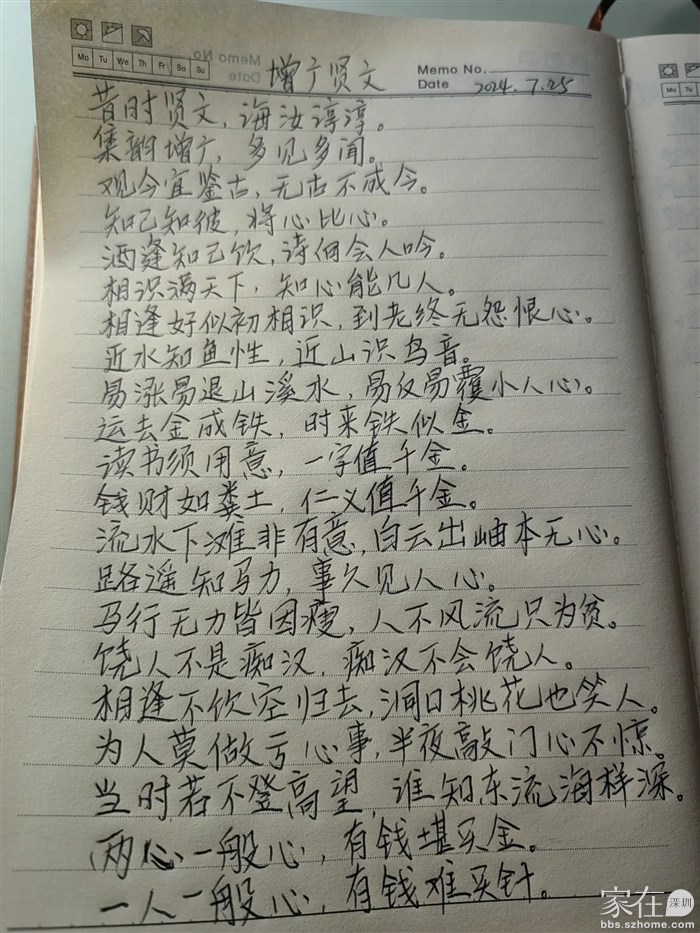 Mo Tu We Th Fr Sa Su
增广贤文
Memo No.
Date 2024.7.25
昔时贤文,诲汝谆谆。
集韵增广,多见多闻。
观今宜鉴古,无古不成今。
知己知彼,将心比心。
酒逢知己饮,诗向会人吟。
相识满天下,知心能几人。
相逢好似初相识,到老终无怨恨心。
近水知鱼性,近山识鸟音。
易涨易退山溪水,易反易覆小人心。
运去金成铁,时来铁似金。
读书须用意,一字值千金。
钱财如粪土,仁义值千金。
流水下滩非有意,白云出岫本无心。
路遥知马力,事久见人心。
马行无力皆因瘦,人不风流只为贫。
饶人不是痴汉,痴汉不会饶人。
相逢不饮空归去,洞口桃花也笑人。
为人莫做亏心事,半夜敲门心不惊。
当时若不登高望,谁知东流海样深。
两心一般心,有钱堪买金。
一人一般心,有钱难买针。
家在深圳
bbs.szhome.com